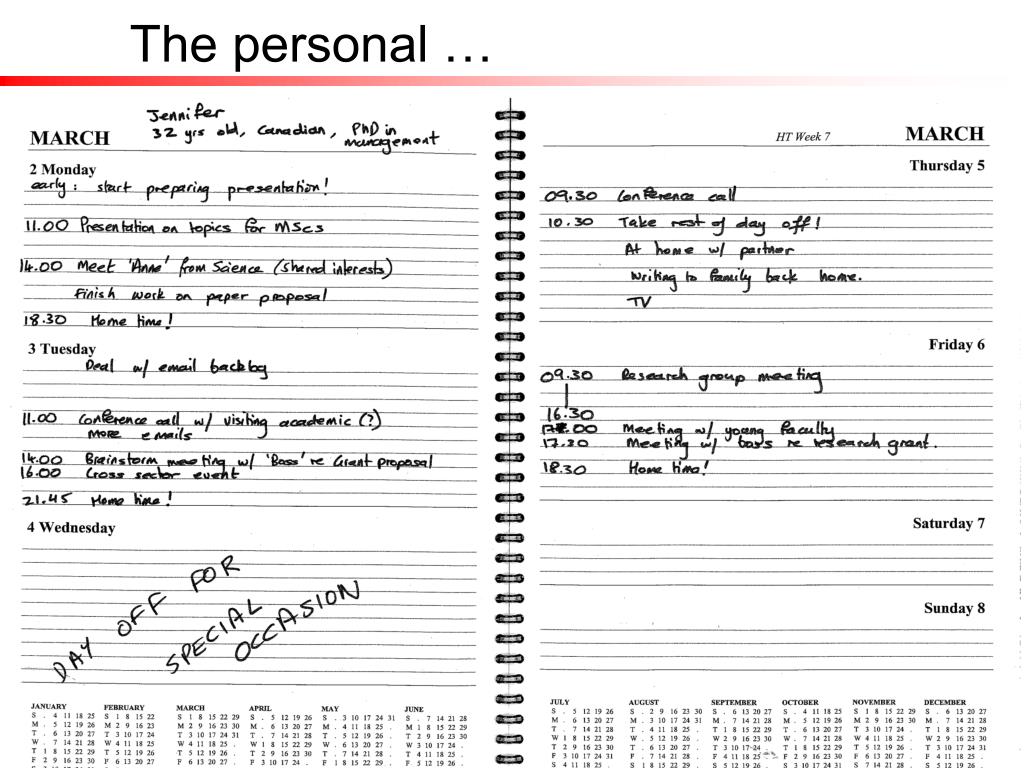 The personal …
Jennifer
32 yrs old, Canadian, PhD in
management
MARCH
2 Monday
early: start preparing presentation!
11.00 Presentation on topics for MScs
14.00 Meet 'Anne' from Science (shared interests)
Finish work on paper proposal
18.30 Home time!
3 Tuesday
Deal w/ email backlog
11.00 Conference call w/ visiting academic (?)
More emails
14.00 Brainstorm meeting w/ 'Boss' re Grant proposal
16.00 Cross sector event
21.45 Home time!
4 Wednesday
DAY OFF FOR
SPECIAL
OCCASION
JANUARY FEBRUARY MARCH APRIL MAY JUNE
S . 4 11 18 25 S 1 8 15 22 S 1 8 15 22 29 S . 5 12 19 26 S . 3 10 17 24 31 S . 7 14 21 28
M . 5 12 19 26 M 2 9 16 23 M 2 9 16 23 30 M . 6 13 20 27 M . 4 11 18 25 M 1 8 15 22 29
T . 6 13 20 27 T 3 10 17 24 T 3 10 17 24 31 T . 7 14 21 28 T . 5 12 19 26 T 2 9 16 23 30
W . 7 14 21 28 W 4 11 18 25 W 4 11 18 25 . W 1 8 15 22 29 W . 6 13 20 27 W 3 10 17 24 .
T 1 8 15 22 29 T 5 12 19 26 T 5 12 19 26 . T 2 9 16 23 30 T . 7 14 21 28 T 4 11 18 25 .
F 2 9 16 23 30 F 6 13 20 27 F 6 13 20 27 . F 3 10 17 24 . F 1 8 15 22 29 F 5 12 19 26 .
HT Week 7 MARCH
Thursday 5
09.30 Conference call
10.30 Take rest of day off!
At home w/ partner
Writing to family back home.
TV
Friday 6
09.30 Research group meeting
16.30
17.00 Meeting w/ young faculty
17.30 Meeting w/ boss re research grant.
18.30 Home time!
Saturday 7
Sunday 8
JULY AUGUST SEPTEMBER OCTOBER NOVEMBER DECEMBER
S . 5 12 19 26 S . 2 9 16 23 30 S . 6 13 20 27 S . 4 11 18 25 S 1 8 15 22 29 S . 6 13 20 27
M . 6 13 20 27 M . 3 10 17 24 31 M . 7 14 21 28 M . 5 12 19 26 M 2 9 16 23 30 M . 7 14 21 28
T . 7 14 21 28 T . 4 11 18 25 T 1 8 15 22 29 T . 6 13 20 27 T 3 10 17 24 . T 1 8 15 22 29
W 1 8 15 22 29 W . 5 12 19 26 W 2 9 16 23 30 W . 7 14 21 28 W 4 11 18 25 . W 2 9 16 23 30
T 2 9 16 23 30 T . 6 13 20 27 T 3 10 17 24 . T 1 8 15 22 29 T 5 12 19 26 . T 3 10 17 24 31
F 3 10 17 24 31 F . 7 14 21 28 F 4 11 18 25 . F 2 9 16 23 30 F 6 13 20 27 . F 4 11 18 25 .